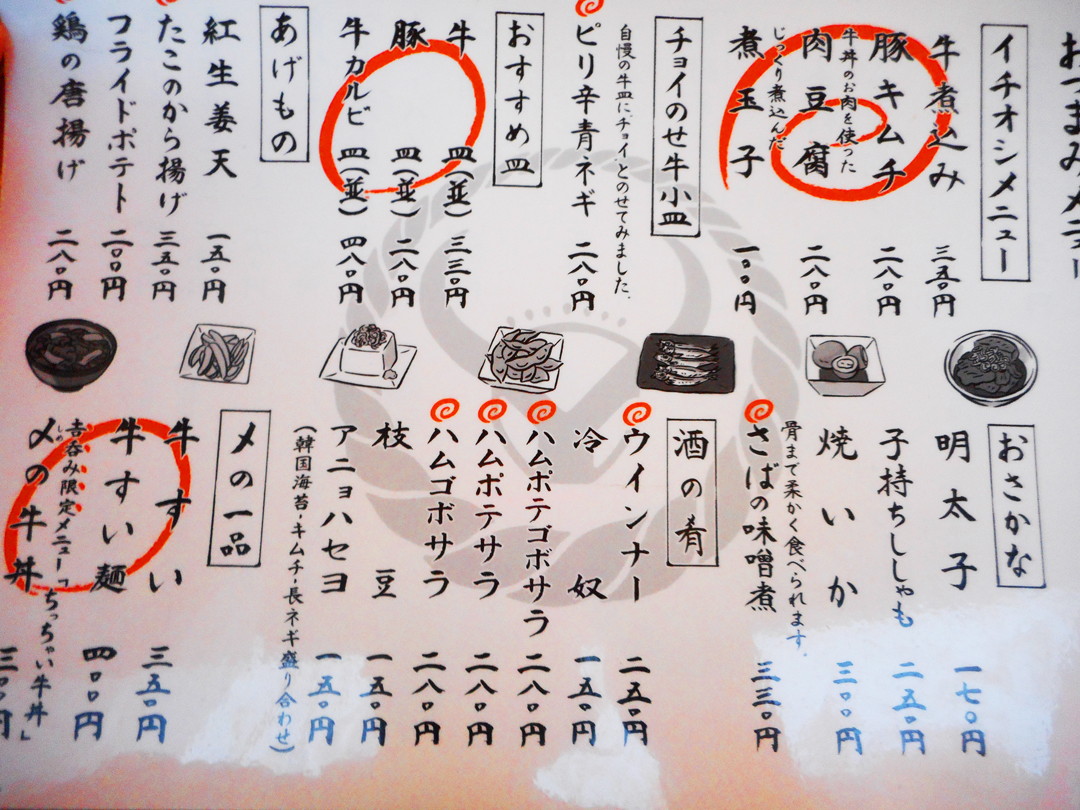 おつまみメニュー
イチオシメニュー
牛煮込み 三五〇円
豚キムチ 二八〇円
牛丼のお肉を使った
肉豆腐 二八〇円
じっくり煮込んだ
煮玉子 一〇〇円
チョイのせ牛小皿
自慢の牛皿にチョイとのせてみました。
ピリ辛青ネギ 二八〇円
おすすめ皿
牛皿(並) 三三〇円
豚皿(並) 二八〇円
牛カルビ皿(並) 四八〇円
あげもの
紅生姜天 一五〇円
たこのから揚げ 三五〇円
フライドポテト 二〇〇円
鶏の唐揚げ 二八〇円
おさかな
明太子 一七〇円
子持ちししゃも 二五〇円
焼いか 三〇〇円
骨まで柔かく食べられます。
さばの味噌煮 三三〇円
酒の肴
ウインナー 二五〇円
冷奴 一五〇円
ハムポテゴボサラ 二八〇円
ハムポテサラ 二八〇円
ハムゴボサラ 二八〇円
枝豆 一五〇円
アニョハセヨ 一五〇円
(韓国海苔・キムチ・長ネギ盛り合わせ)
〆の一品
牛すい 三五〇円
牛すい麺 四〇〇円
吉呑み限定メニュー「ちっちゃい牛丼」
〆の牛丼 三〇〇円
しめ